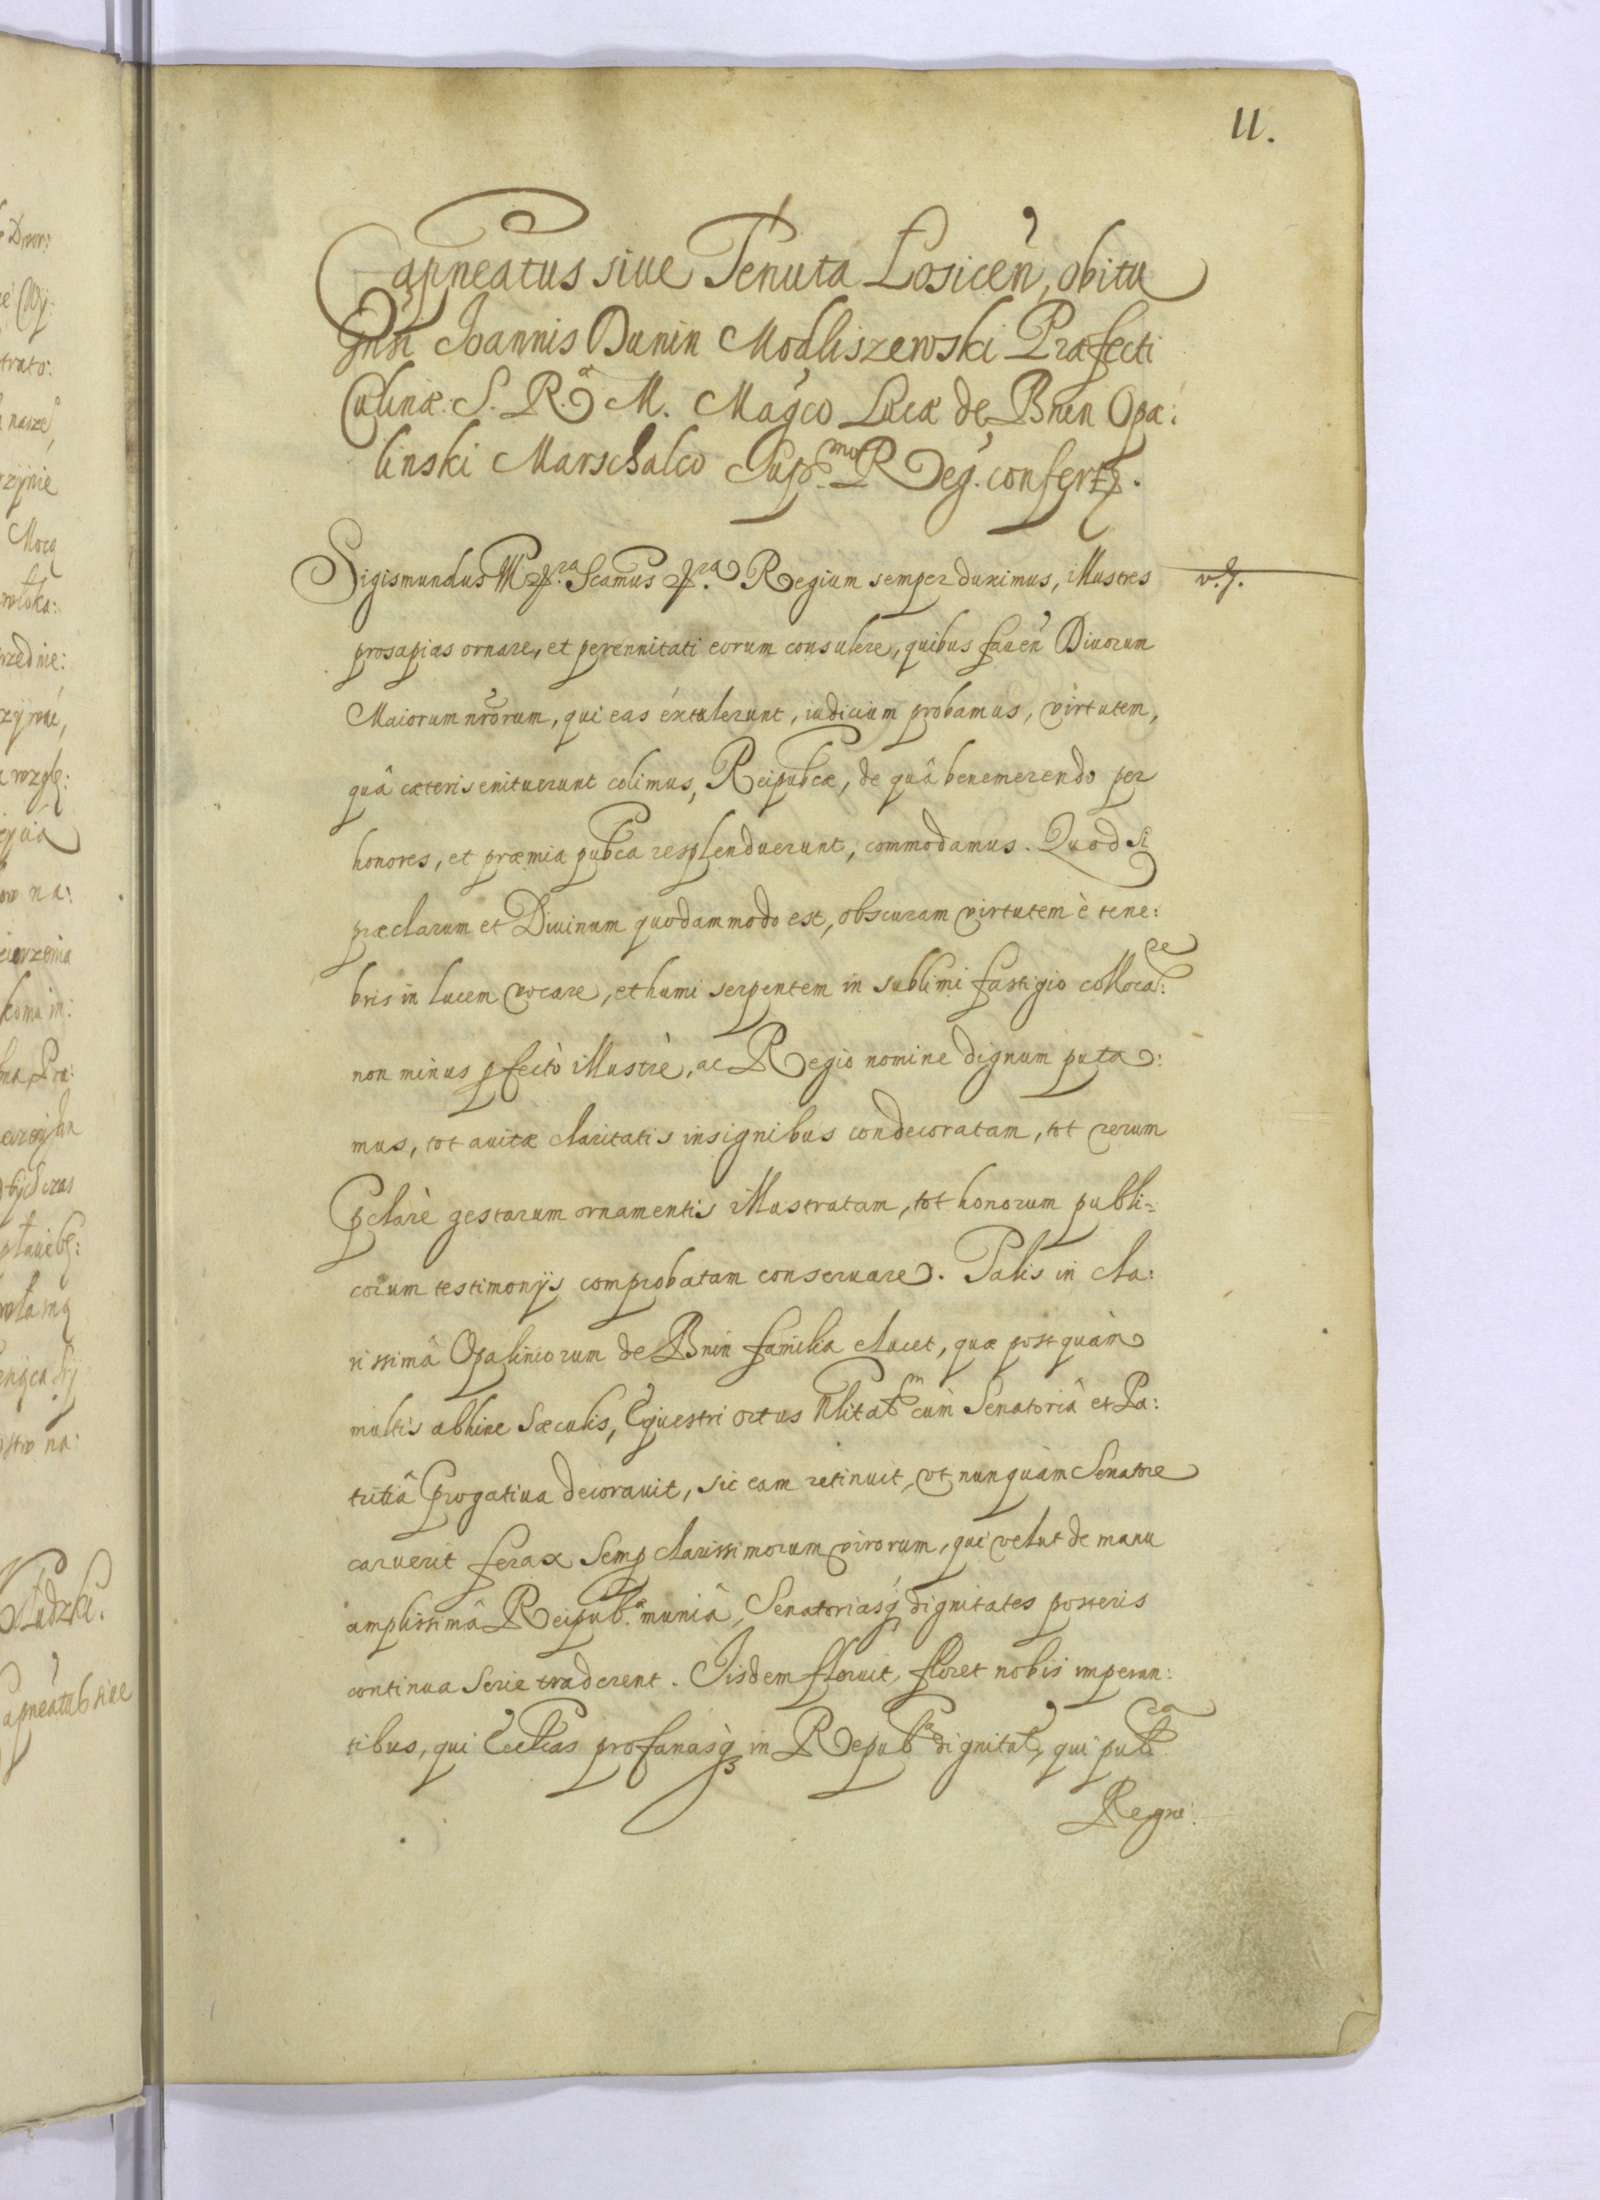 11.
Capneatus siue Tenuta Łosicen̄, obitu
Gnsi Joannis Dunin Modliszewski Præfecti
Culinæ S. R. M. Magco Lucæ de Bnin Opa:
linski Marschalco Supmo Reg. confertr.
Sigismundus III etra. Scamus etra. Regium semper duximus, illustres v. s.
prosapias ornare, et perennitati eorum consulere, quibus fauen̄ Diuorum
Maiorum nrorum, qui eas éxtulerunt, iudicium probamus, virtutem,
quâ cæteris enituerunt colimus, Reipubcæ, de quâ benemerendo per
honores, et præmia pubca resplenduerunt, commodamus. Quod si
præclarum et Diuinum quodammodo est, obscuram virtutem è tene:
bris in lucem vocare, et humi serpentem in sublimi fastigio colloca:re
non minus pfectò illustrè, ac Regio nomine dignum puta:
mus, tot auitæ claritatis insignibus condecoratam, tot rerum
pclarè gestarum ornamentis illustratam, tot honorum publi=
corum testimonijs comprobatam conseruare. Talis in cla:
rissimâ Opaliniorum de Bnin familia elucet, quæ postquàm
multis abhinc Sæculis, Equestri ortus Nlitatem cùm Senatoriâ et Pa:
tritiâ Progatiua decorauit, sic eam retinuit, vt nunquàm Senatore
caruerit ferax Semp clarissimorum virorum, qui velut de manu
amplissimâ Reipub. muniâ, Senatoriasq dignitates posteris
continua Serie traderent. Jisdem floruit, floret nobis imperan:
tibus, qui Ecclicas profanasq in Repubca dignitat, qui pubca
Regni